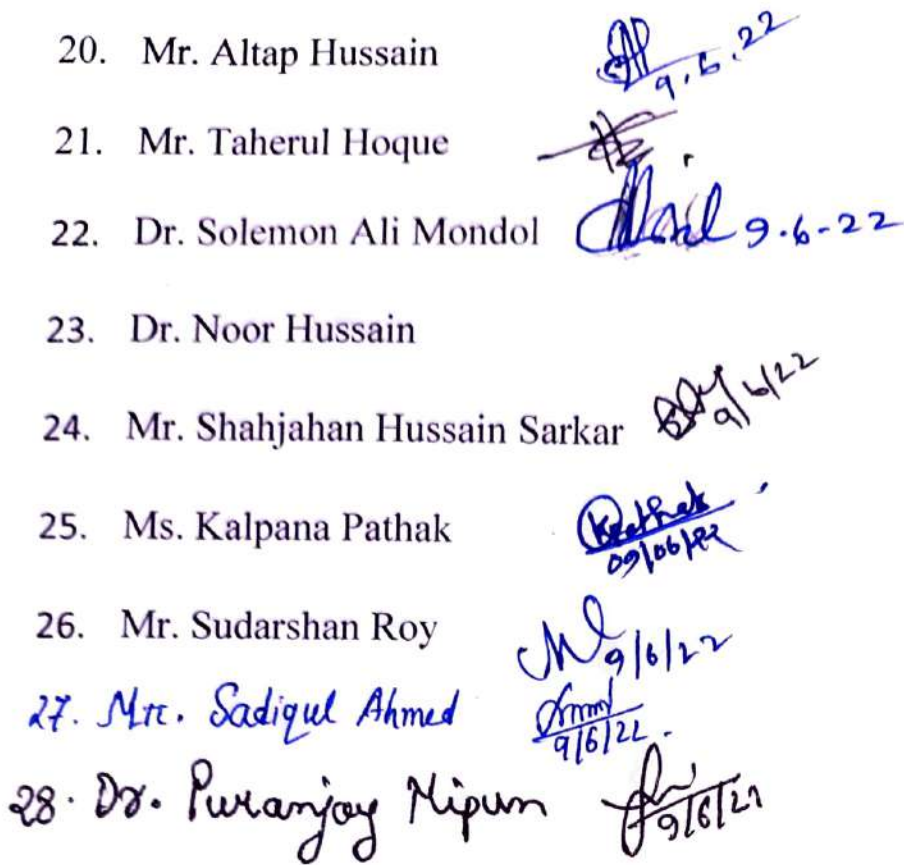 20. Mr. Altap Hussain 9.6.22
21. Mr. Taherul Hoque
22. Dr. Solemon Ali Mondol 9.6-22
23. Dr. Noor Hussain
24. Mr. Shahjahan Hussain Sarkar 9/6/22
25. Ms. Kalpana Pathak KPathak
09/06/22
26. Mr. Sudarshan Roy 9/6/22
27. Mr. Sadiqul Ahmed
9/6/22.
28. Dr. Puranjoy Mipun
9/6/22